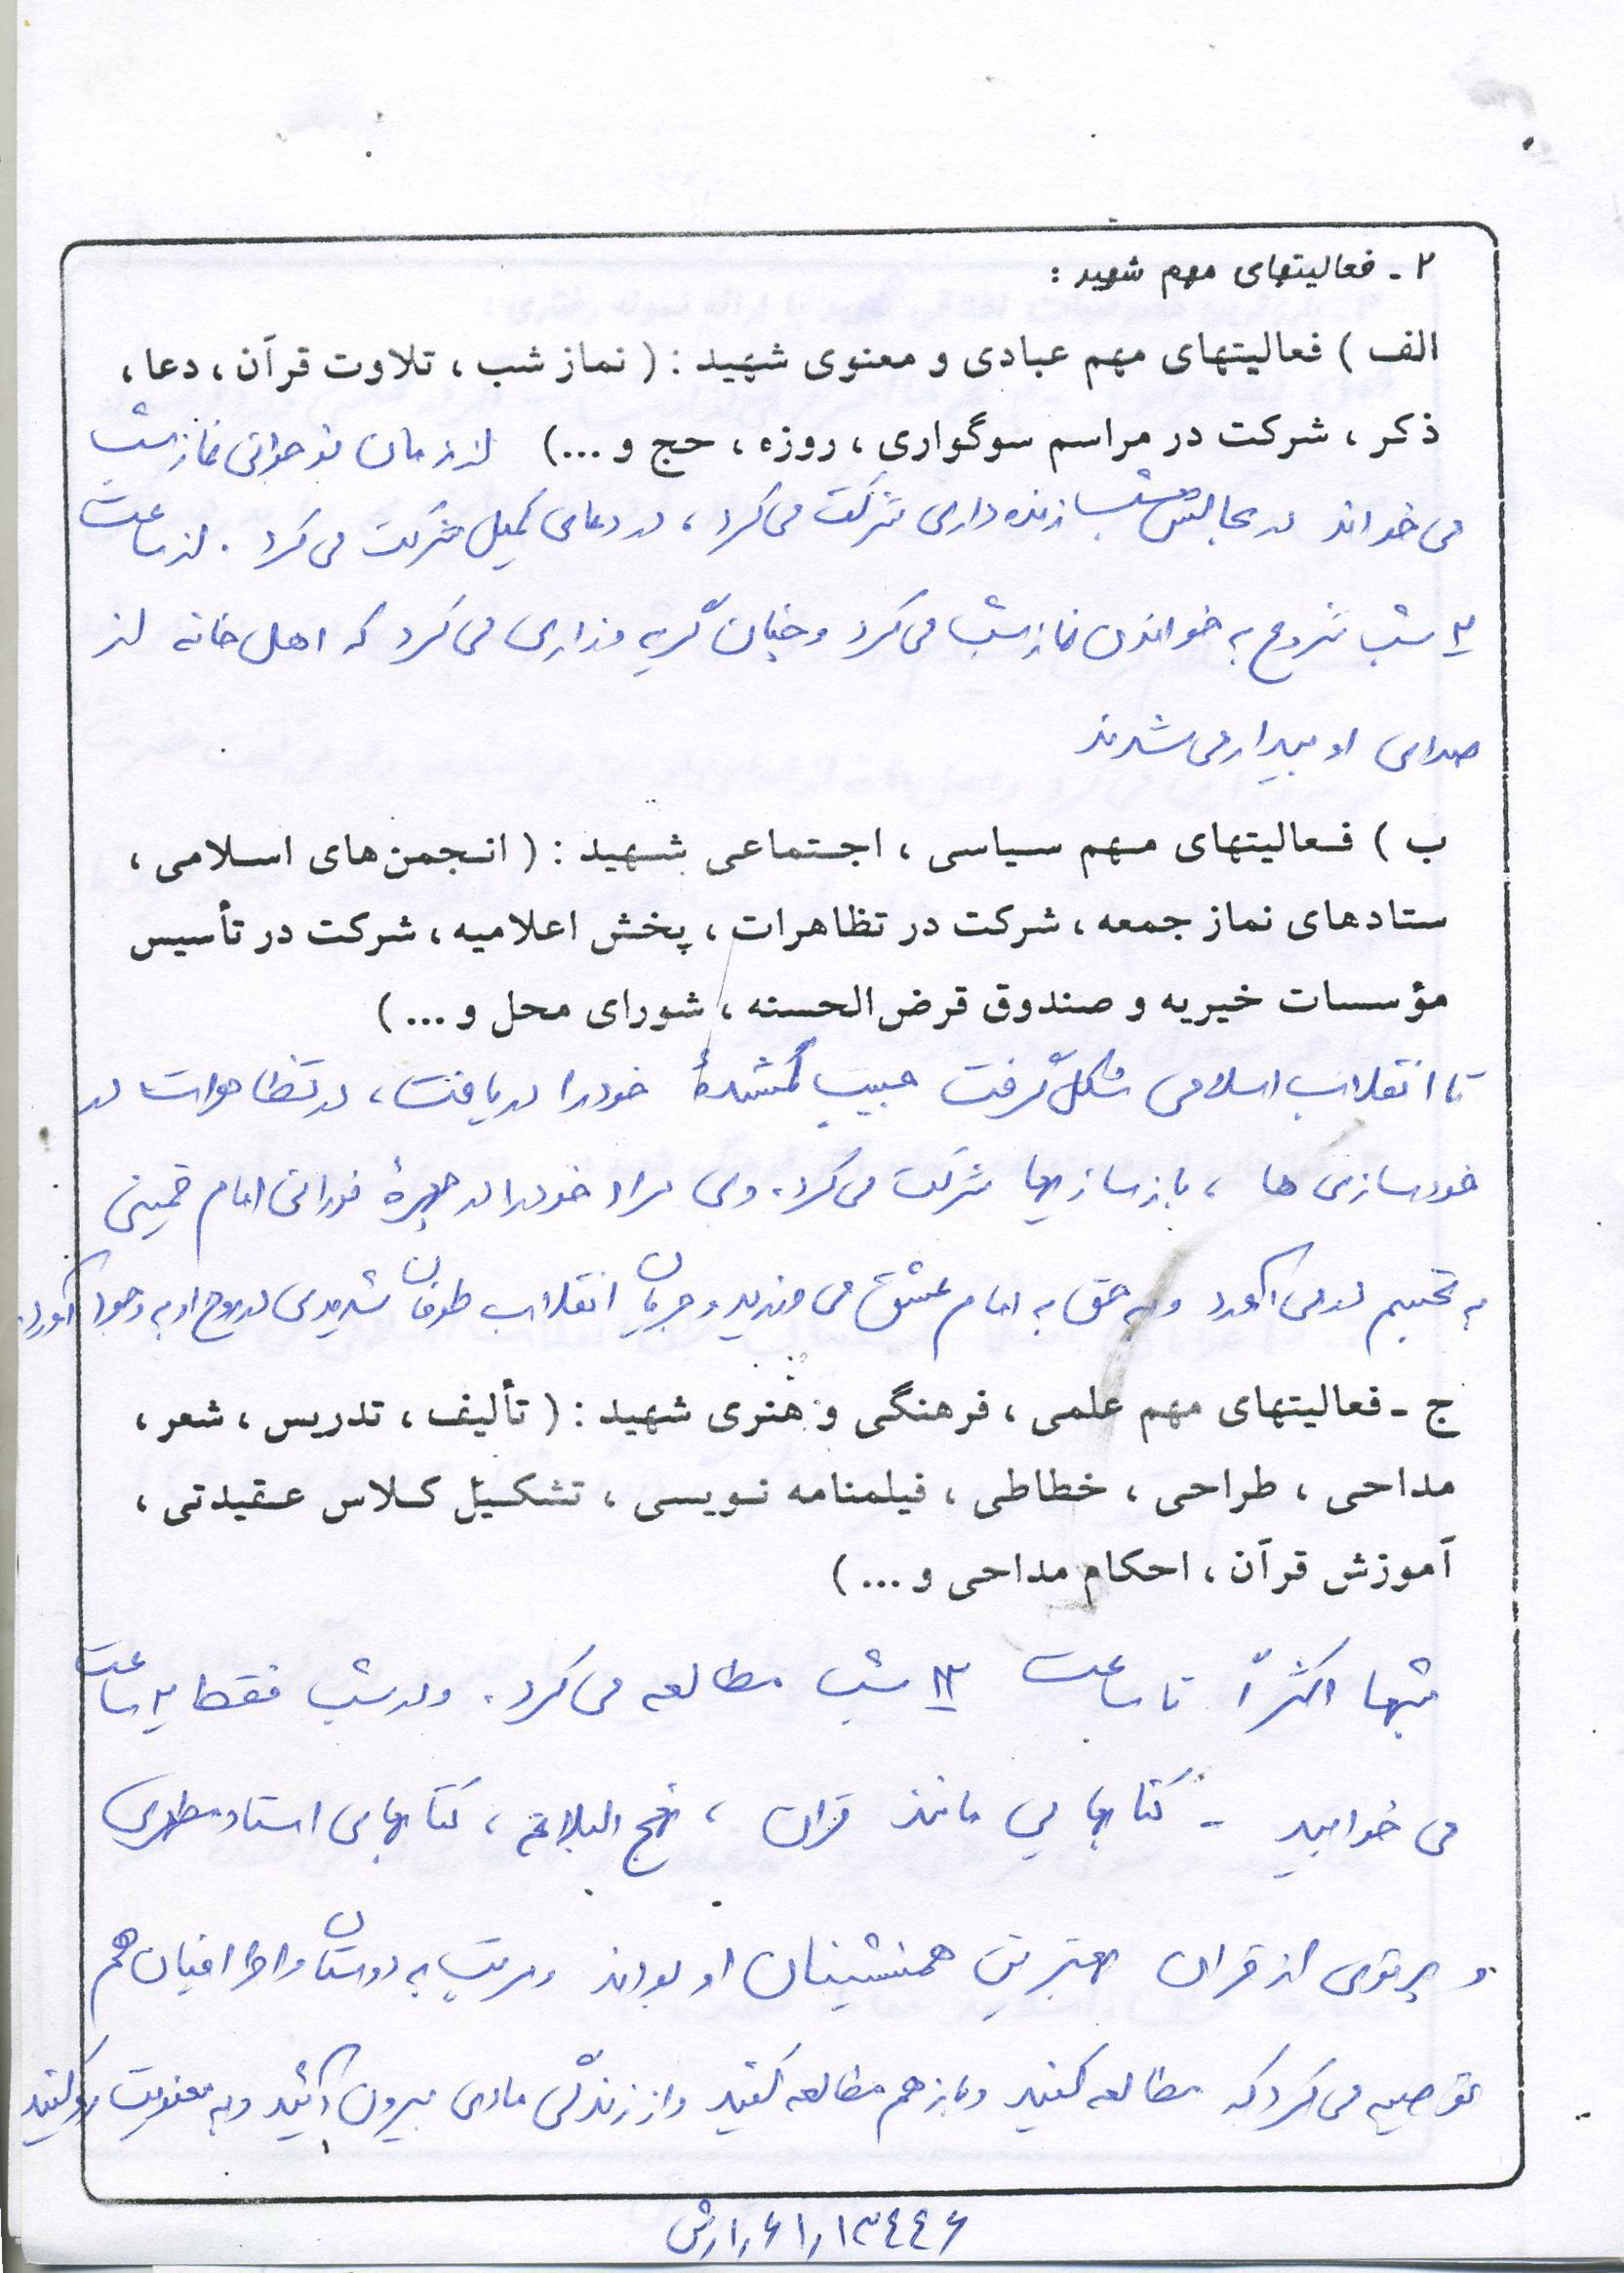 ۲ - فعالیتهای مهم شهید :
الف ) فعالیتهای مهم عبادی و معنوی شهید : ( نماز شب ، تلاوت قرآن ، دعا ،
ذکر ، شرکت در مراسم سوگواری ، روزه ، حج و ...) از زمان نوجوانی نماز شب
می خواند در مجالس شب زنده داری شرکت می کرد ، در دعای کمیل شرکت می کرد . از ساعت
۲ شب شروع به خواندن نماز شب می کرد و چنان گریه و زاری می کرد که اهل خانه از
صدای او بیدار می شدند
ب ) فعالیتهای مهم سیاسی ، اجتماعی شهید : ( انجمن های اسلامی ،
ستادهای نماز جمعه ، شرکت در تظاهرات ، پخش اعلامیه ، شرکت در تأسیس
مؤسسات خیریه و صندوق قرض الحسنه ، شورای محل و ... )
تا انقلاب اسلامی شکل گرفت حبیب گمشدهٔ خود را دریافت ، در تظاهرات در
خودسازی ها ، بازسازیها شرکت می کرد . وی مراد خود را در چهرهٔ نورانی امام خمینی
به تجسم در می آورد و به حق به امام عشق می ورزید و جریان انقلاب طوفان شدیدی در روح او به وجود آورد.
ج - فعالیتهای مهم علمی ، فرهنگی و هنری شهید : ( تألیف ، تدریس ، شعر ،
مداحی ، طراحی ، خطاطی ، فیلمنامه نویسی ، تشکیل کلاس عقیدتی ،
آموزش قرآن ، احکام مداحی و ... )
شبها اکثراً تا ساعت ۱۲ شب مطالعه می کرد . و در شب فقط ۲ ساعت
می خوابید - کتابهایی مانند قران ، نهج البلاغه ، کتابهای استاد مطهری
و پرتوی از قران بهترین همنشینان او بودند و مرتب به دوستان و اطرافیان هم
توصیه می کرد که مطالعه کنید و باز هم مطالعه کنید و از زندگی مادی بیرون آئید و به معنویت رو کنید